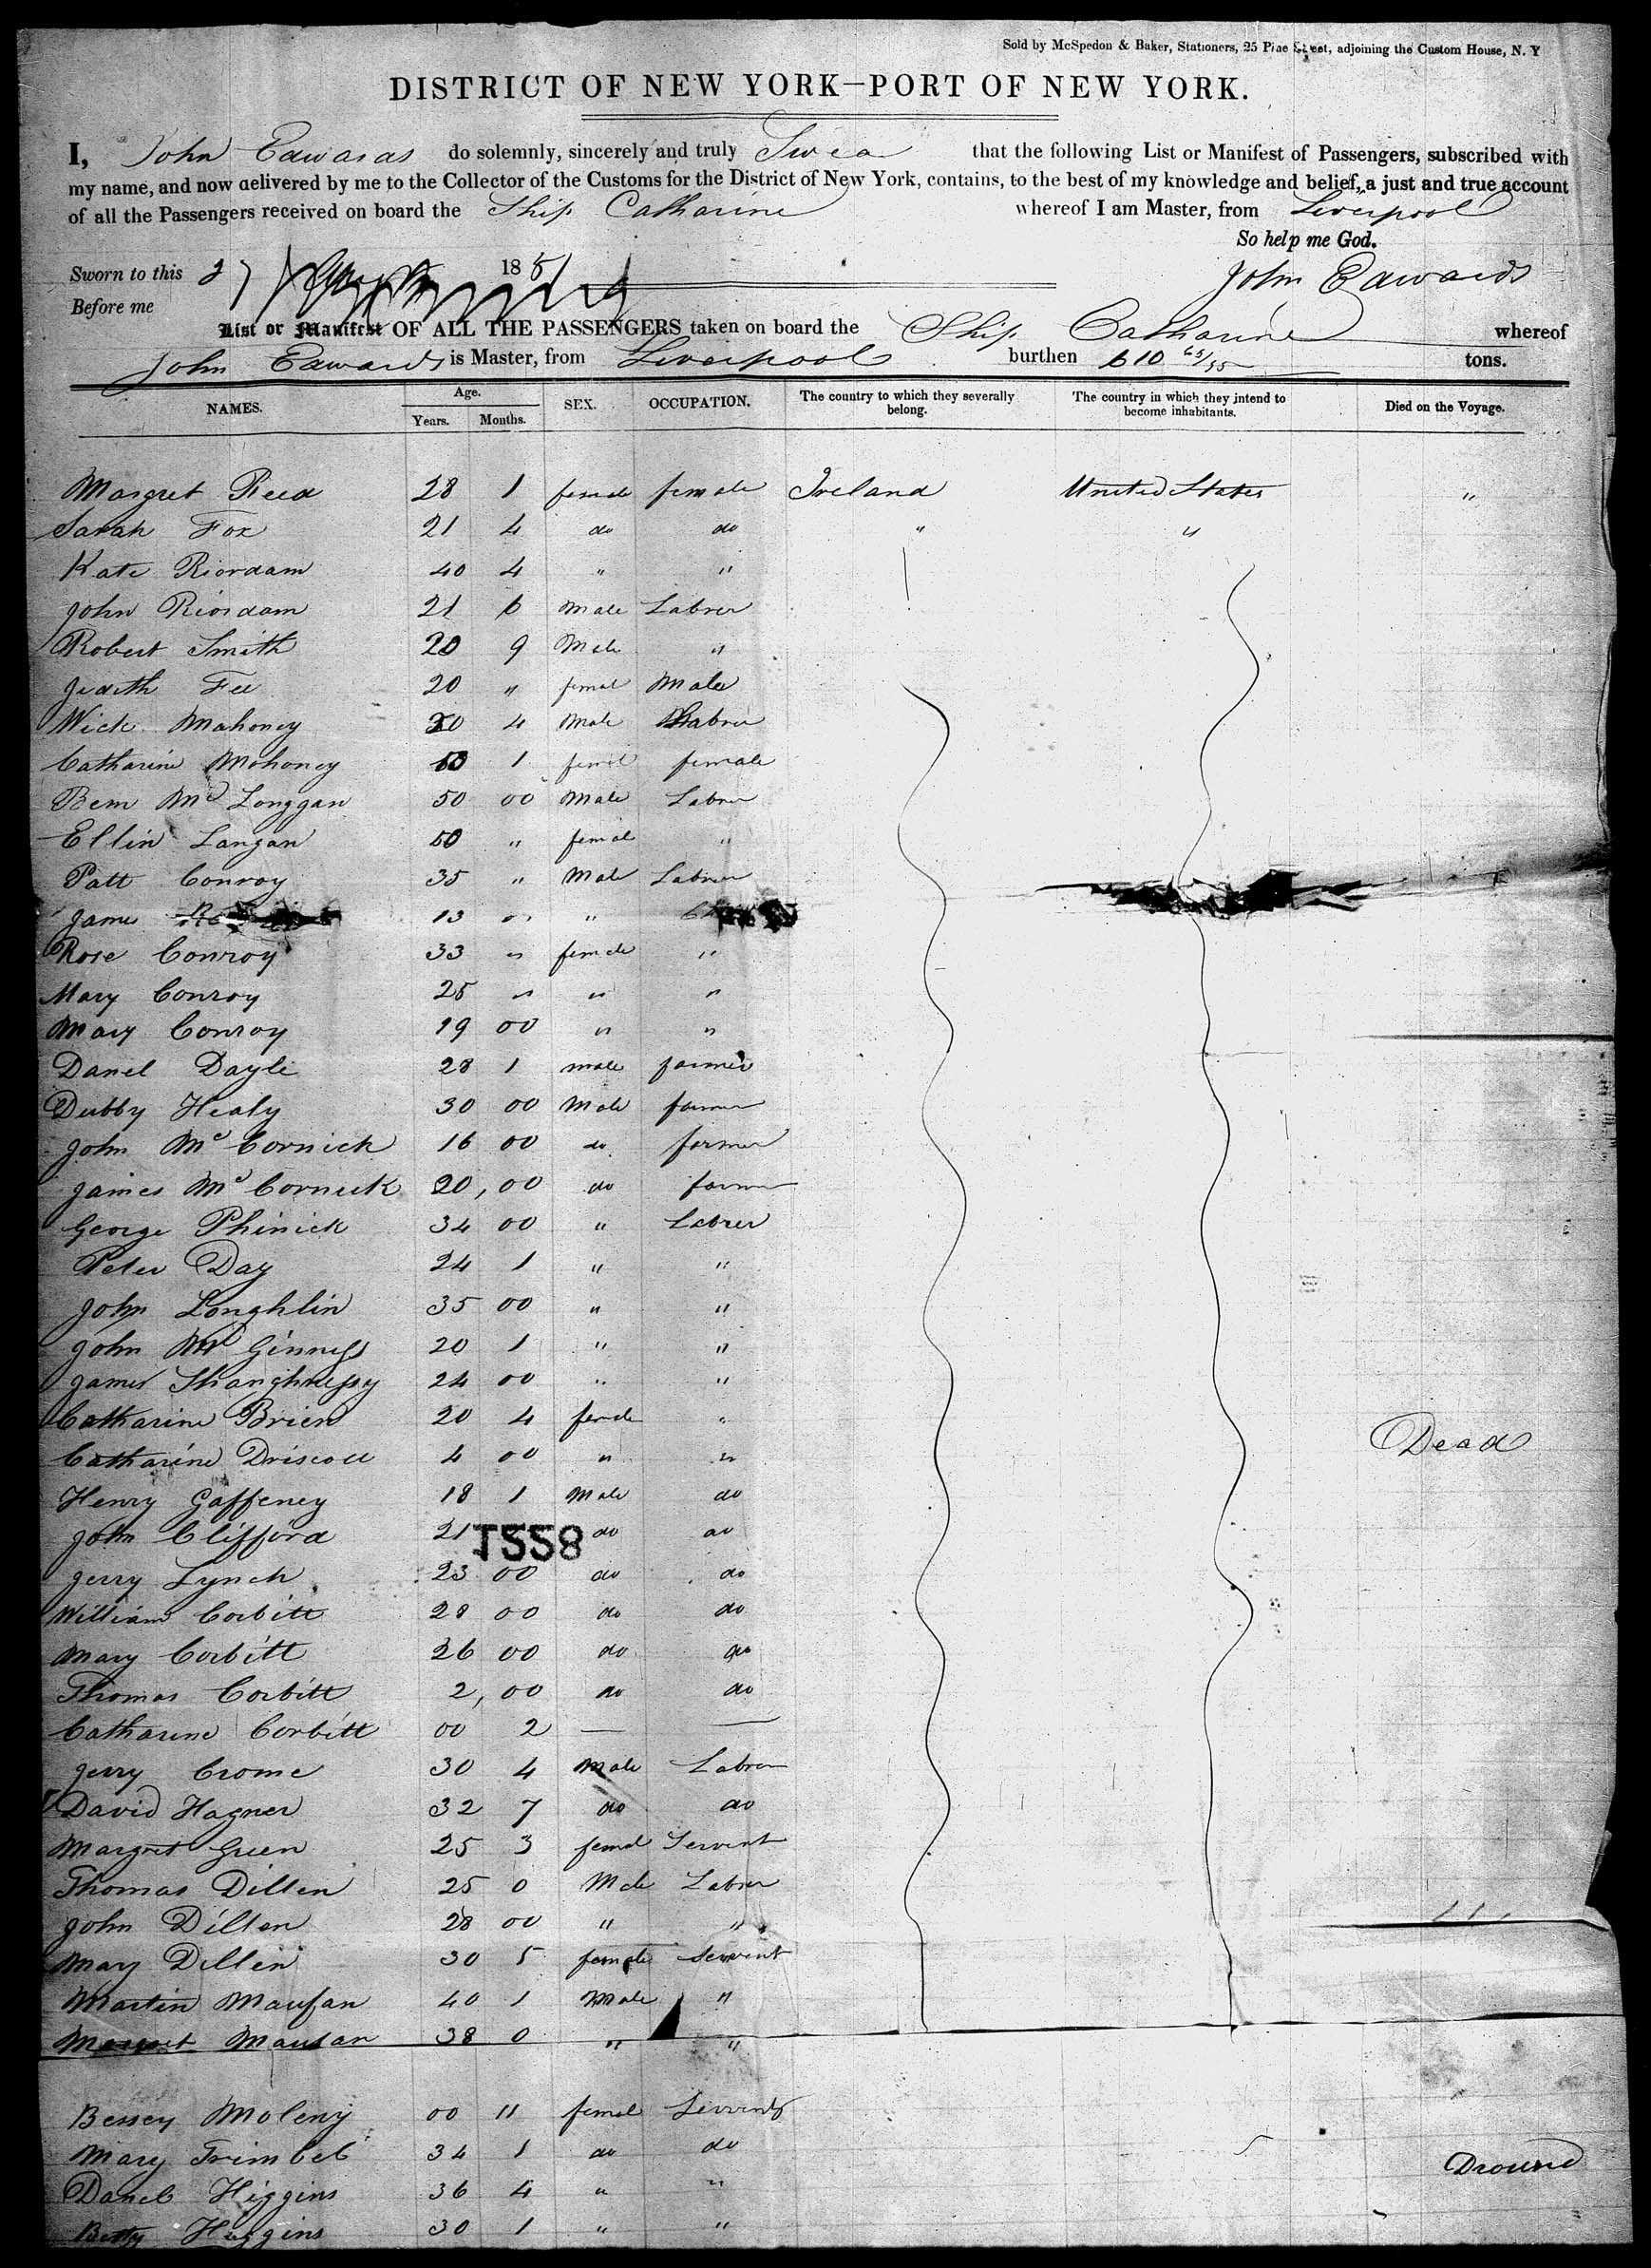 Sold by McSpedon & Baker, Stationers, 25 Pine Street, adjoining the Custom House, N. Y
DISTRICT OF NEW YORK—PORT OF NEW YORK.
I, John Edwards do solemnly, sincerely and truly Swea that the following List or Manifest of Passengers, subscribed with
my name, and now delivered by me to the Collector of the Customs for the District of New York, contains, to the best of my knowledge and belief, a just and true account
of all the Passengers received on board the Ship Catharine whereof I am Master, from Liverpool
So help me God.
Sworn to this 27 1851
John Edwards
Before me
List or Manifest OF ALL THE PASSENGERS taken on board the Ship Catharine whereof
John Edwards is Master, from Liverpool burthen 610 65/95 tons.
NAMES. Age. Years. Months. SEX. OCCUPATION. The country to which they severally belong. The country in which they intend to become inhabitants. Died on the Voyage.
Margret Reed 28 1 female female Ireland United States "
Sarah Fox 21 4 do do " "
Kate Riordam 40 4 " "
John Riordam 21 6 Male Labrer
Robert Smith 20 9 Male "
Judith Fee 20 " femal Male
Mick Mahoney 20 4 Male Labrer
Catharine Mohoney 60 1 femel female
Bem Mc Longgan 50 00 Male Labrer
Ellin Langan 50 " femal "
Patt Conroy 35 " Male Labrer
James 13 " "
Rose Conroy 33 " female "
Mary Conroy 25 " " "
Mary Conroy 19 00 " "
Danel Dayle 28 1 male farmer
Dubby Healy 30 00 Male farmer
John Mc Cornick 16 00 do farmer
James Mc Cornick 20, 00 do farmer
George Phinick 34 00 " Labrer
Peter Day 24 1 " "
John Loughlin 35 00 " "
John Mc Ginness 20 1 " "
James Shanghnessy 24 00 " "
Catharine Brien 20 4 female "
Catharine Driscoll 4 00 " " Dead
Henry Gaffeney 18 1 Male do
John Clifford 21 do do
1558
Jerry Lynch 23 00 do do
William Corbitt 28 00 do do
Mary Corbitt 26 00 do do
Thomas Corbitt 2, 00 do do
Catharine Corbitt 00 2 — —
Jerry Crome 30 4 Male Labrer
David Hagner 32 7 do do
Margret Green 25 3 femal Servent
Thomas Dillen 25 0 Male Labrer
John Dillen 28 00 " "
Mary Dillen 30 5 female Servent
Martin Maufan 40 1 Male "
Margret Maufan 38 0 " "
Bessey Moleny 00 11 femal Servent
Mary Trimbel 34 1 do do Dround
Danel Higgins 36 4 " "
Betty Higgins 30 1 " "